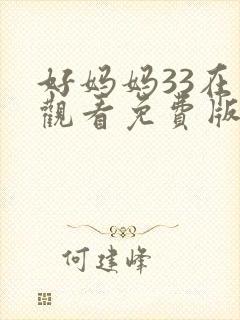 好妈妈33在
觀看免費版
何建峰